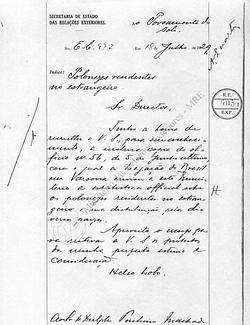 SECRETARIA DE ESTADO
DAS RELAÇÕES EXTERIORES.
ao Povoamento do
Solo.
N. E.C.
Em 18 de Julho de 1929
Indice: Polonezes residentes
no estrangeiro.
Sr. Director,
Tenho a honra de
remetter a V. S., para seu conheci-
mento, a inclusa copia do of-
ficio nº 56, de 5 de Junho ultimo
com o qual a Legação do Brasil
em Varsovia enviou a este Minis-
terio a estatistica official sobre
os polonezes residentes no estran-
geiro e sua distribuição pelos di-
versos paizes.
Aproveito o ensejo
para reiterar a V. S. os protestos
da minha perfeita estima e
consideração
Helio Lobo.
R. E.
EXP.
MRE